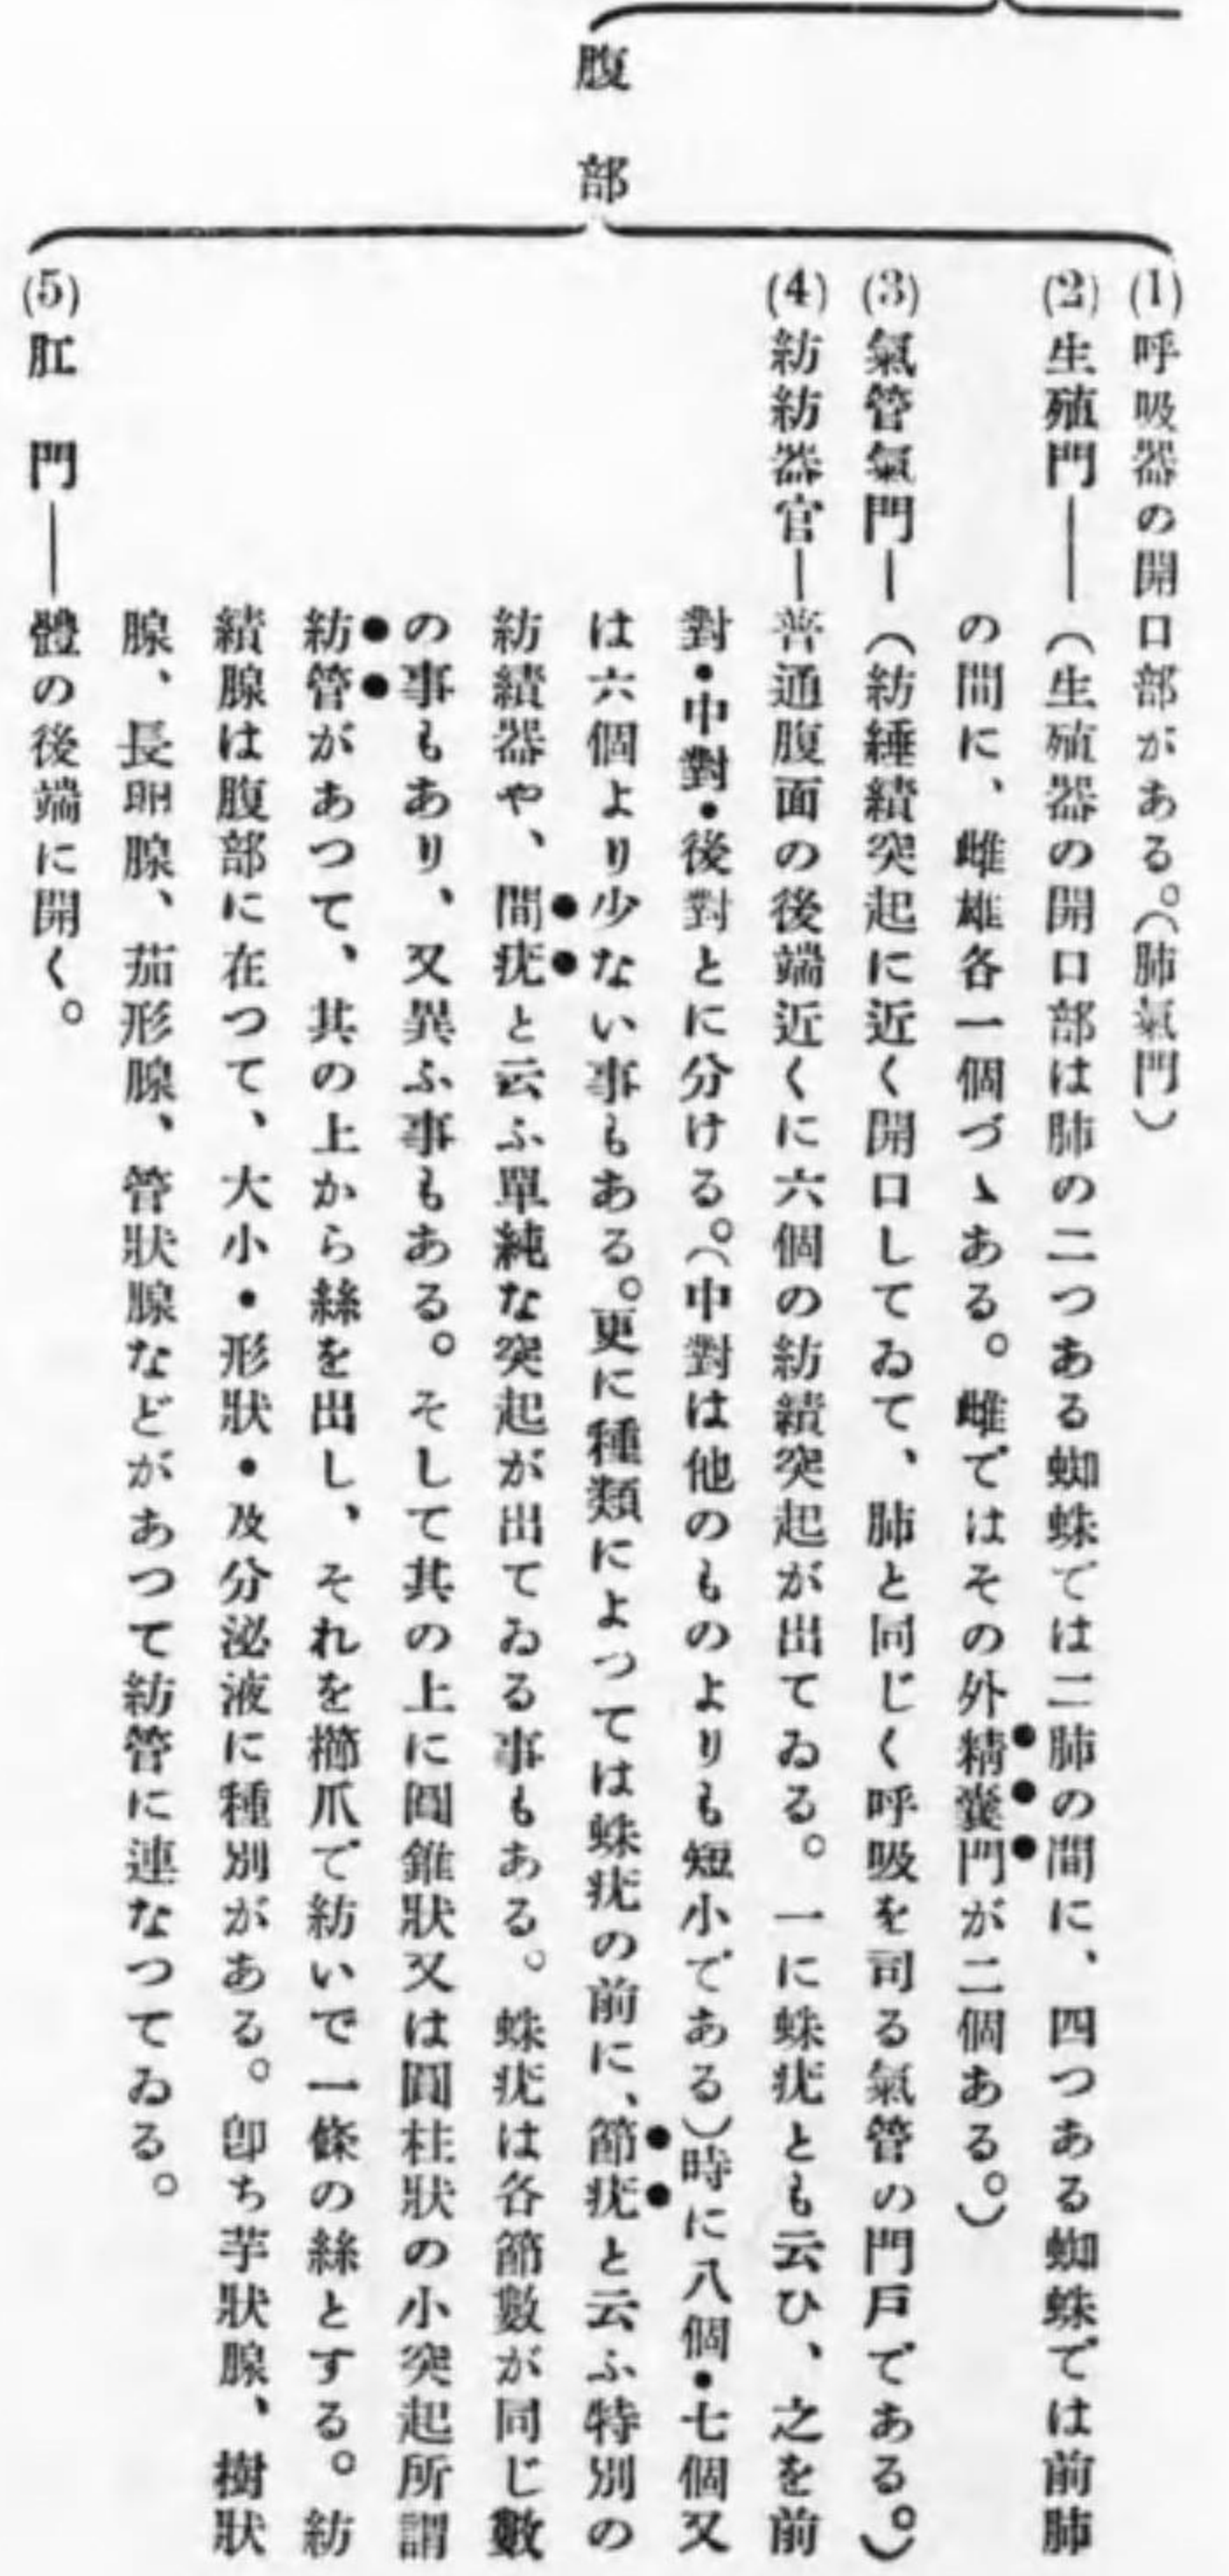 腹部
(1)呼吸器の開口部がある。(肺氣門)
(2)生殖門――(生殖器の開口部は肺の二つある蜘蛛では二肺の間に、四つある蜘蛛では前肺
の間に、雌雄各一個づゝある。雌ではその外精嚢門が二個ある。)
(3)氣管氣門―(紡錘績突起に近く開口してゐて、肺と同じく呼吸を司る氣管の門戸である。)
(4)紡紡器官―普通腹面の後端近くに六個の紡績突起が出てゐる。一に蛛疣とも云ひ、之を前
對・中對・後對とに分ける。(中對は他のものよりも短小である)時に八個・七個又
は六個より少ない事もある。更に種類によつては蛛疣の前に、節疣と云ふ特別の
紡績器や、間疣と云ふ單純な突起が出てゐる事もある。蛛疣は各節數が同じ數
の事もあり、又異ふ事もある。そして其の上に圓錐狀又は圓柱狀の小突起所謂
紡管があつて、其の上から絲を出し、それを櫛爪で紡いで一條の絲とする。紡
績腺は腹部に在つて、大小・形狀・及分泌液に種別がある。卽ち芋狀腺、樹狀
腺、長卵腺、茄形腺、管狀腺などがあつて紡管に連なつてゐる。
(5)肛門――體の後端に開く。